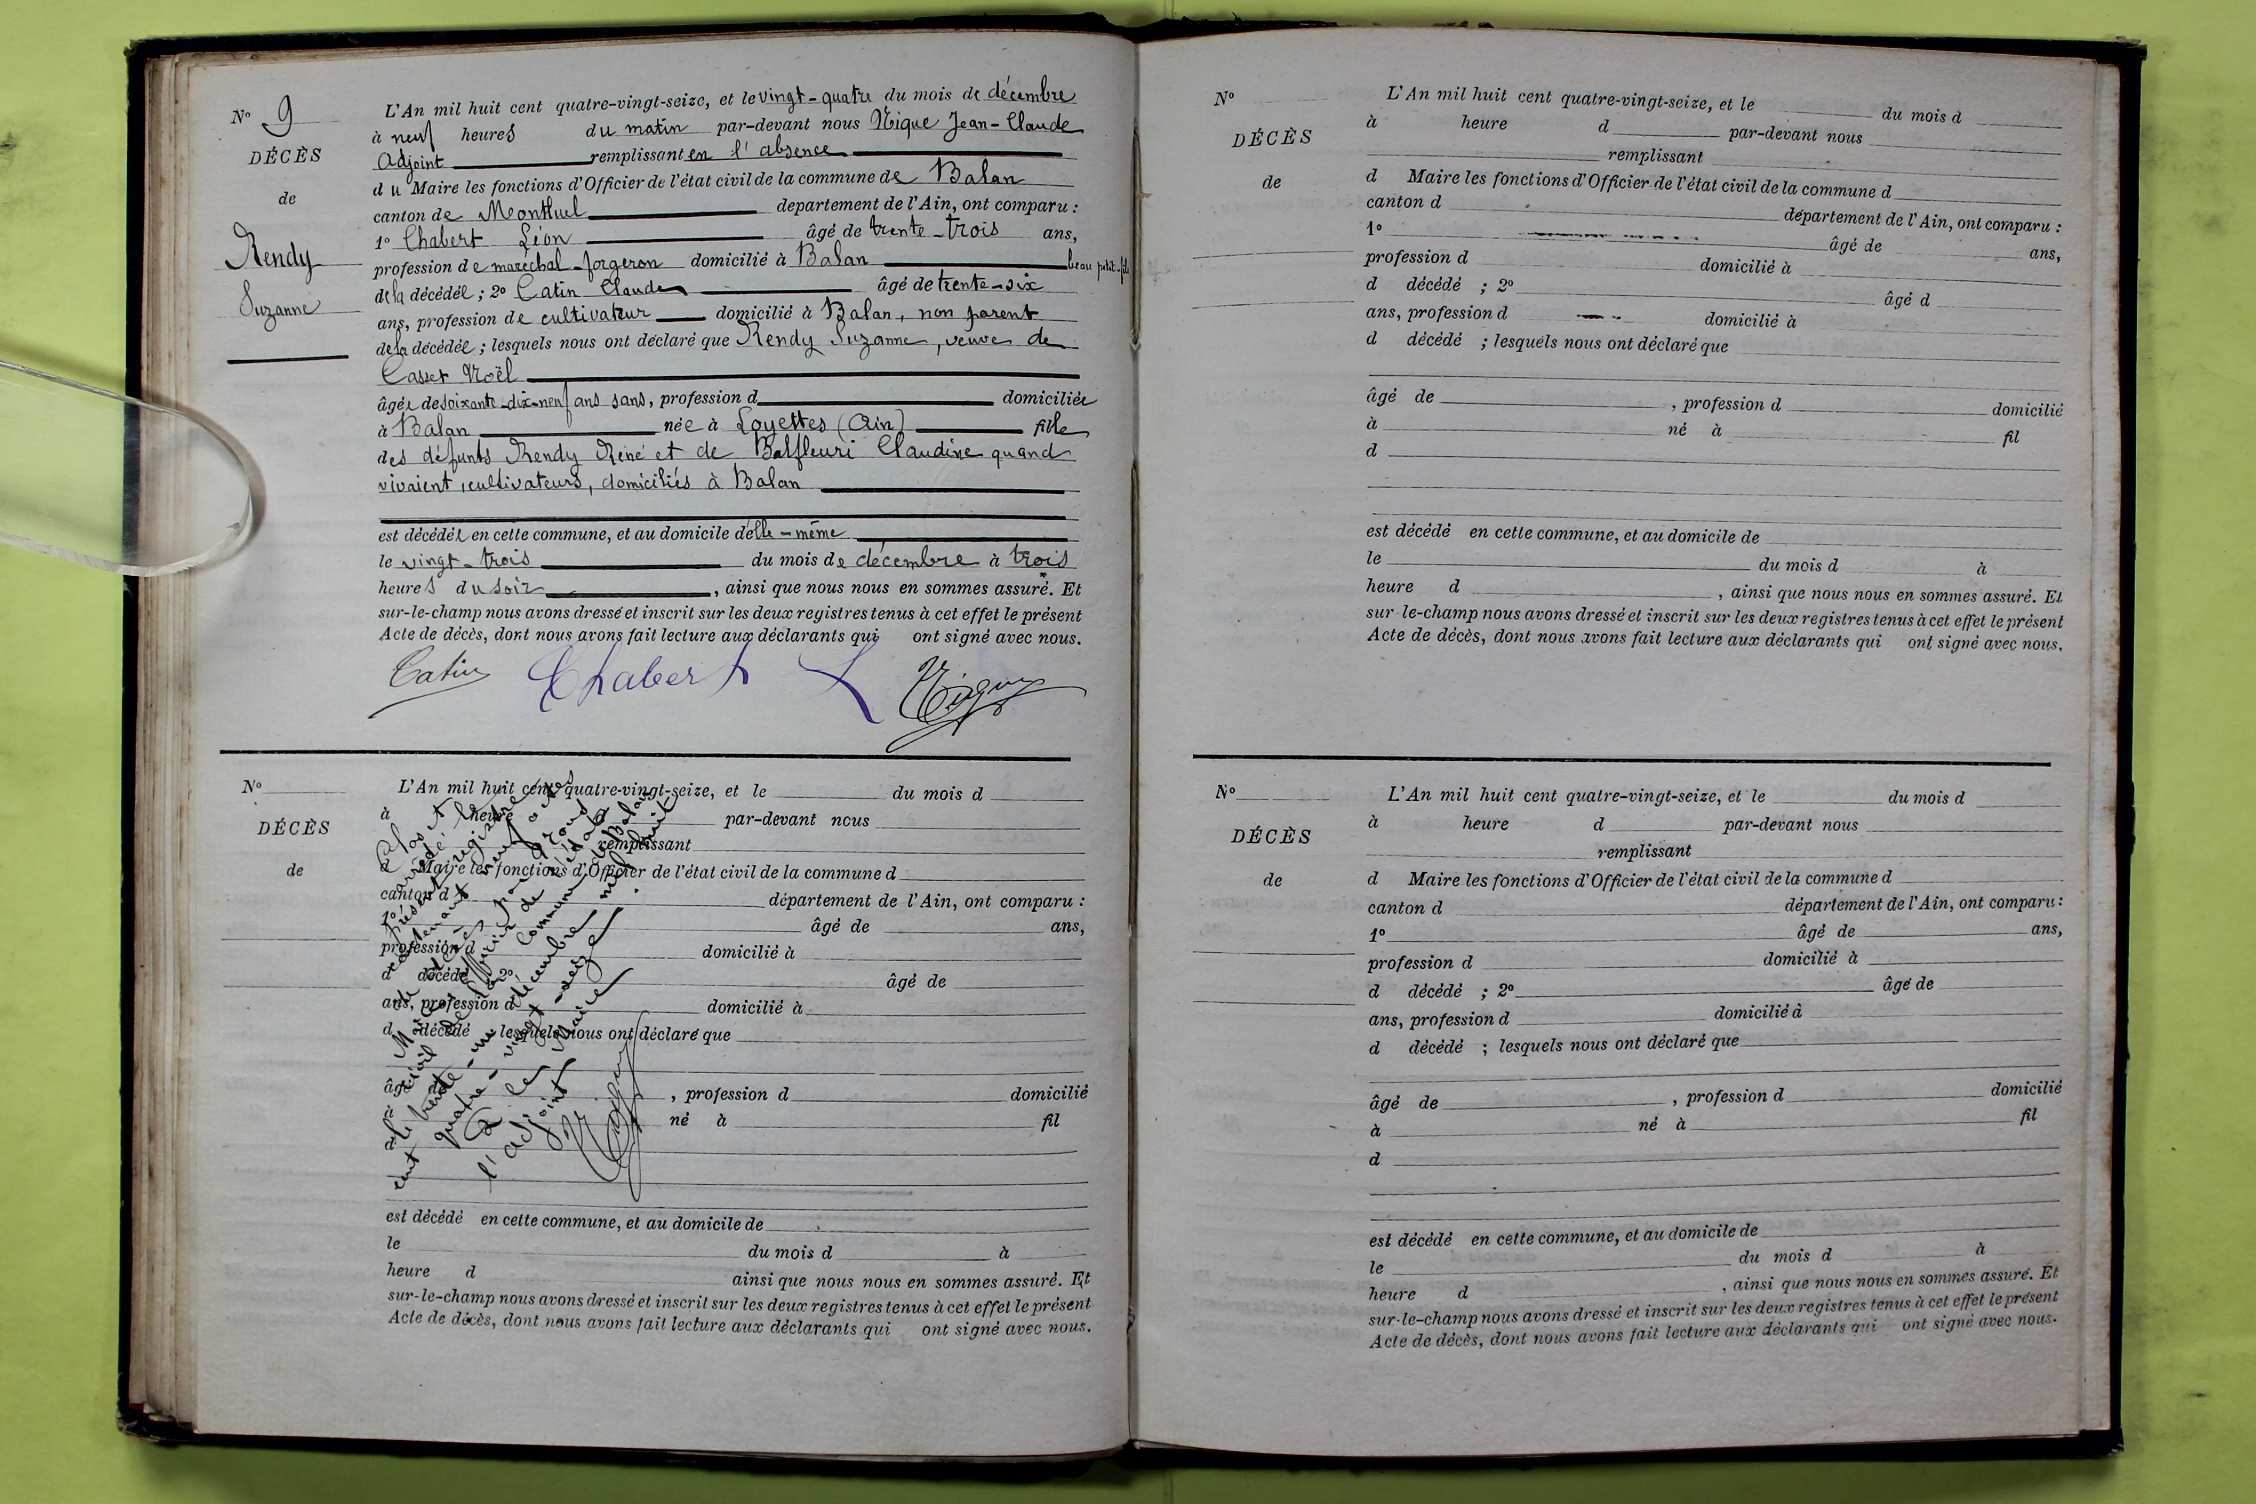 N° 9
DÉCÈS
de
Rendy
Suzanne
L'An mil huit cent quatre-vingt-seize, et le vingt-quatre du mois de décembre
à neuf heures du matin par-devant nous Nique Jean-Claude
Adjoint remplissant en l'absence
du Maire les fonctions d'Officier de l'état civil de la commune de Balan
canton de Montluel département de l'Ain, ont comparu :
1° Chabert Léon âgé de trente-trois ans,
profession de maréchal-forgeron domicilié à Balan beau petit-fils
de la décédée ; 2° Catin Claude âgé de trente-six
ans, profession de cultivateur domicilié à Balan, non parent
de la décédée ; lesquels nous ont déclaré que Rendy Suzanne, veuve de
Casset Noël
âgée de soixante-dix-neuf ans sans, profession d domiciliée
à Balan née à Loyettes (Ain) fille
des défunts Rendy René et de Balfleuri Claudine quand
vivaient, cultivateurs, domiciliés à Balan
est décédée en cette commune, et au domicile d'elle-même
le vingt-trois du mois de décembre à trois
heures du soir, ainsi que nous nous en sommes assuré. Et
sur-le-champ nous avons dressé et inscrit sur les deux registres tenus à cet effet le présent
Acte de décès, dont nous avons fait lecture aux déclarants qui ont signé avec nous.
Catin Chabert L Nique
N°
DÉCÈS
de
L'An mil huit cent quatre-vingt-seize, et le du mois d
à heure par-devant nous
remplissant
d Maire les fonctions d'Officier de l'état civil de la commune d
canton d département de l'Ain, ont comparu :
1° âgé de ans,
profession d domicilié à
d décédé 2° âgé de
ans, profession d domicilié à
d décédé lesquels nous ont déclaré que
âgé de , profession d domicilié
à né à fil
d
est décédé en cette commune, et au domicile de
le du mois d à
heure d ainsi que nous nous en sommes assuré. Et
sur-le-champ nous avons dressé et inscrit sur les deux registres tenus à cet effet le présent
Acte de décès, dont nous avons fait lecture aux déclarants qui ont signé avec nous.
Clos et
arrêté le
présent registre
contenant neuf actes
de décès par nous
Maire officier de l'état
civil de la commune de Balan
le trente-un décembre mil huit
cent quatre-vingt-seize.
P. le Maire
l'adjoint
Nique
N°
DÉCÈS
de
L'An mil huit cent quatre-vingt-seize, et le du mois d
à heure d par-devant nous
remplissant
d Maire les fonctions d'Officier de l'état civil de la commune d
canton d département de l'Ain, ont comparu :
1° âgé de ans,
profession d domicilié à
d décédé ; 2° âgé d
ans, profession d domicilié à
d décédé ; lesquels nous ont déclaré que
âgé de , profession d domicilié
à né à fil
d
est décédé en cette commune, et au domicile de
le du mois d à
heure d , ainsi que nous nous en sommes assuré. Et
sur-le-champ nous avons dressé et inscrit sur les deux registres tenus à cet effet le présent
Acte de décès, dont nous avons fait lecture aux déclarants qui ont signé avec nous.
N°
DÉCÈS
de
L'An mil huit cent quatre-vingt-seize, et le du mois d
à heure d par-devant nous
remplissant
d Maire les fonctions d'Officier de l'état civil de la commune d
canton d département de l'Ain, ont comparu :
1° âgé de ans,
profession d domicilié à
d décédé ; 2° âgé de
ans, profession d domicilié à
d décédé ; lesquels nous ont déclaré que
âgé de , profession d domicilié
à né à fil
d
est décédé en cette commune, et au domicile de
le du mois d à
heure d , ainsi que nous nous en sommes assuré. Et
sur-le-champ nous avons dressé et inscrit sur les deux registres tenus à cet effet le présent
Acte de décès, dont nous avons fait lecture aux déclarants qui ont signé avec nous.